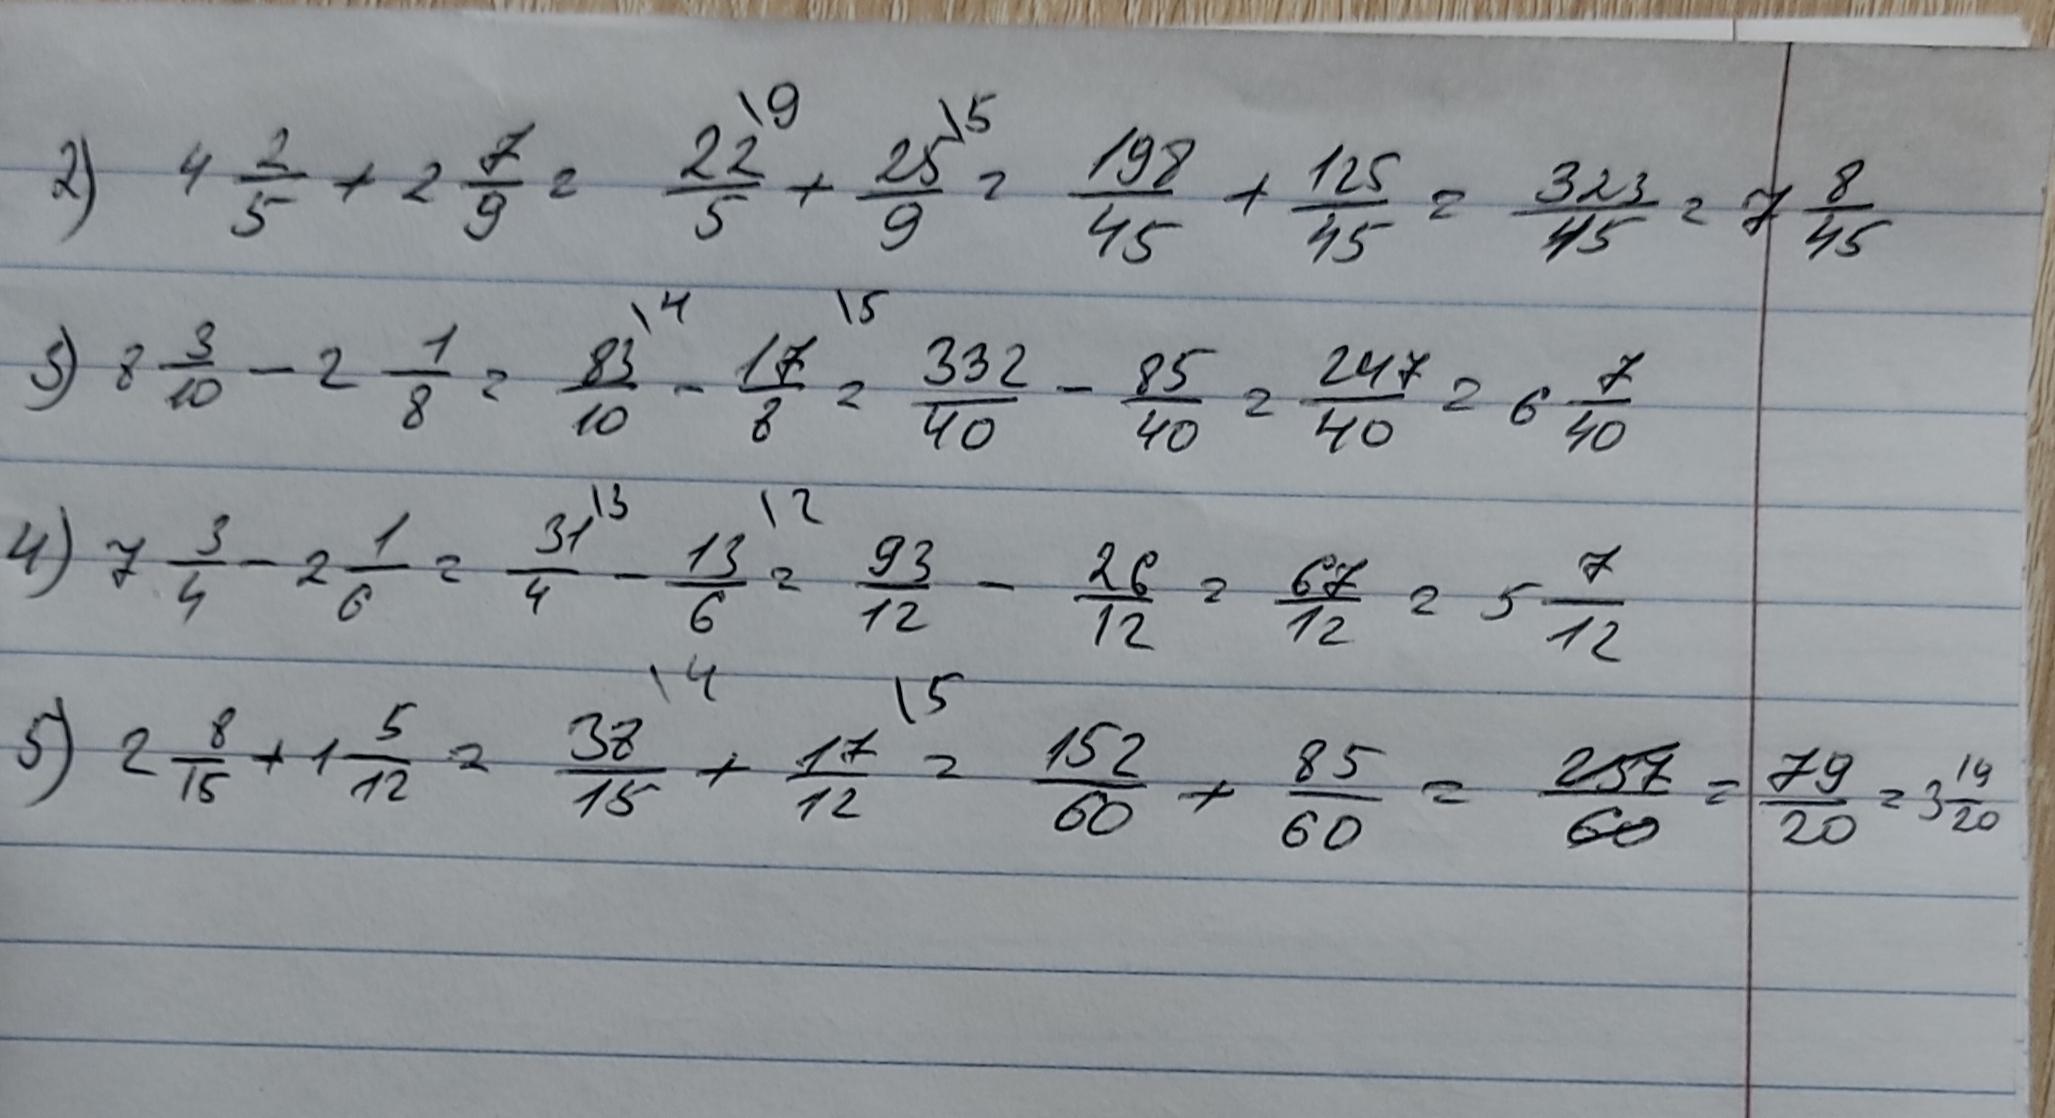 2) 4 2/5 + 2 7/9 = 22\9/5 + 25\5/9 = 198/45 + 125/45 = 323/45 = 7 8/45
3) 8 3/10 - 2 1/8 = 83\4/10 - 17\5/8 = 332/40 - 85/40 = 247/40 = 6 7/40
4) 7 3/4 - 2 1/6 = 31\3/4 - 13\2/6 = 93/12 - 26/12 = 67/12 = 5 7/12
5) 2 8/15 + 1 5/12 = 38\4/15 + 17\5/12 = 152/60 + 85/60 = 237/60 = 79/20 = 3 19/20